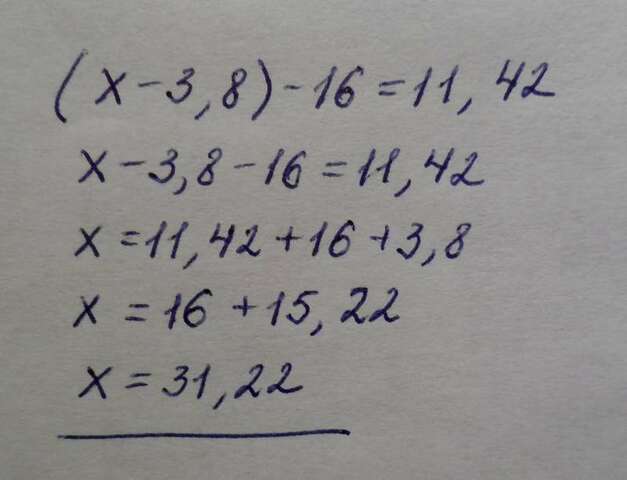 (x-3,8)-16=11,42
x-3,8-16=11,42
x=11,42+16+3,8
x=16+15,22
x=31,22